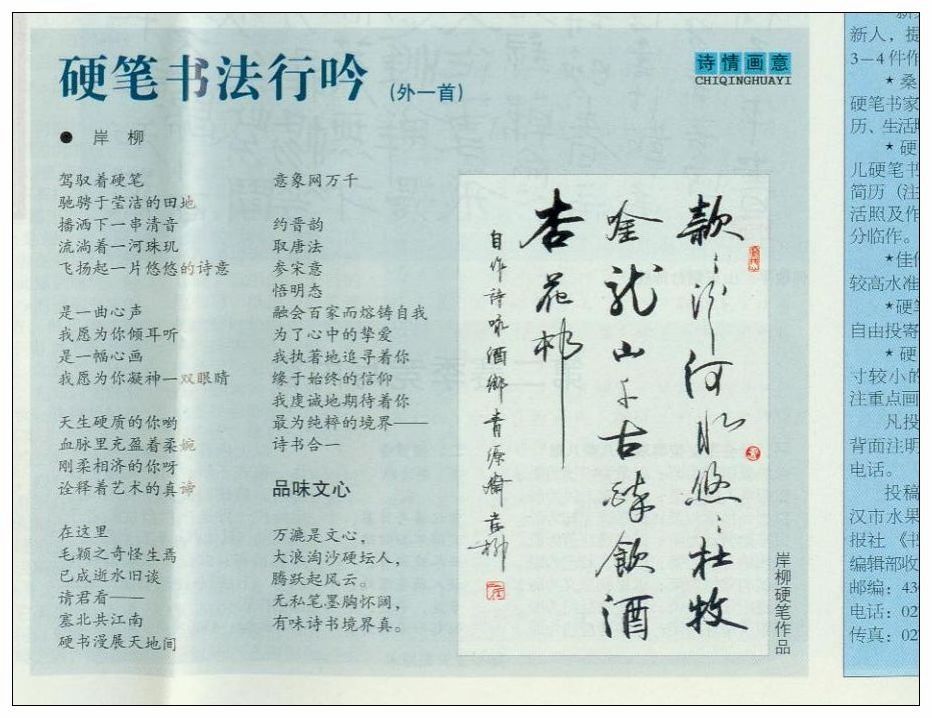 硬笔书法行吟(外一首)
诗情画意
CHIQINGHUAYI
● 岸 柳
驾驭着硬笔
驰骋于莹洁的田地
播洒下一串清音
流淌着一河珠玑
飞扬起一片悠悠的诗意
是一曲心声
我愿为你倾耳听
是一幅心画
我愿为你凝神一双眼睛
天生硬质的你哟
血脉里充盈着柔婉
刚柔相济的你呀
诠释着艺术的真谛
在这里
毛颖之奇怪生焉
已成逝水旧谈
请君看——
塞北共江南
硬书漫展天地间
意象网万千
约晋韵
取唐法
参宋意
悟明态
融会百家而熔铸自我
为了心中的挚爱
我执著地追寻着你
缘于始终的信仰
我虔诚地期待着你
最为纯粹的境界——
诗书合一
品味文心
万漉是文心,
大浪淘沙硬坛人,
腾跃起风云。
无私笔墨胸怀阔,
有味诗书境界真。
歌汾河水悠悠杜牧
吟龙山千古醉饮酒
杏花村
自作诗咏酒乡青源斋岸柳
岸柳硬笔作品
新人,提
3—4件作
★桑
硬笔书家
历、生活照
★硬
儿硬笔书
简历(注
活照及作
分临作。
★佳作
较高水准
★硬笔
自由投寄
★硬
寸较小的
注重点画
凡投
背面注明
电话。
投稿
汉市水果
报社《书
编辑部收
邮编:43
电话:02
传真:02